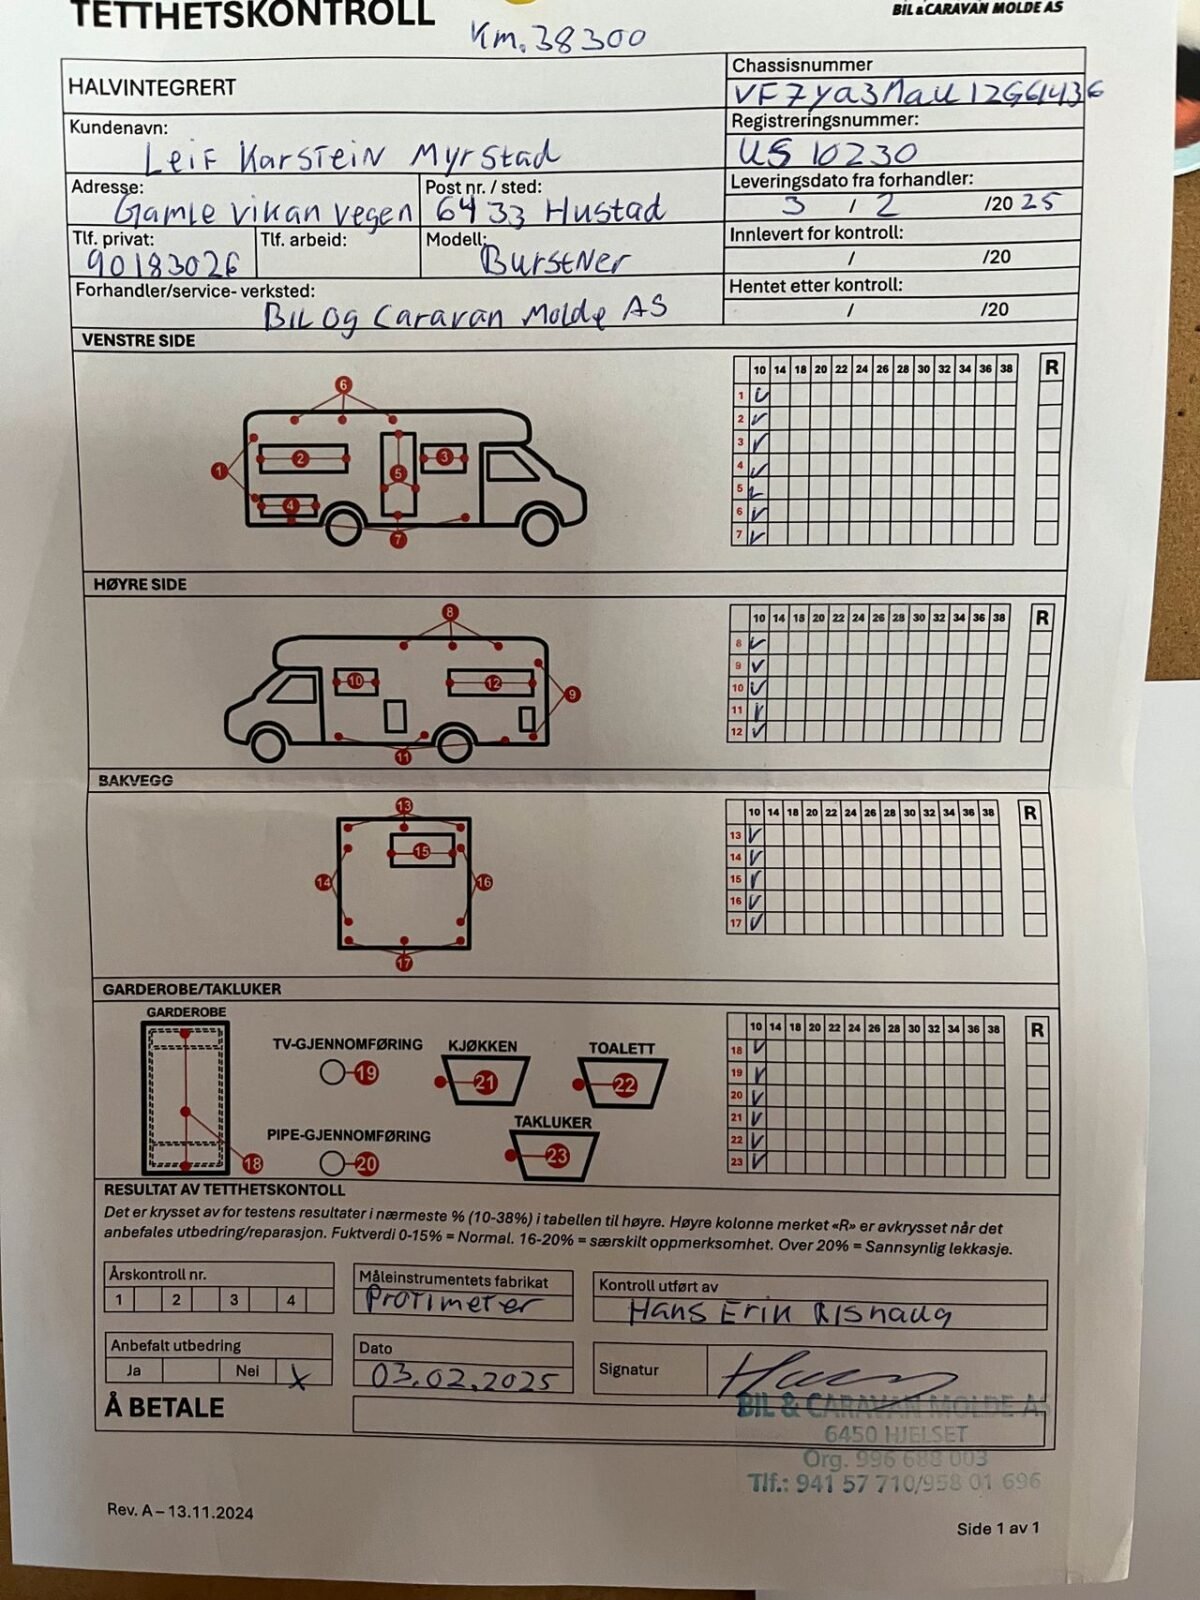 TETTHETSKONTROLL
BIL & CARAVAN MOLDE AS
Km. 38300
HALVINTEGRERT
Chassisnummer
Kundenavn:
Leif Karstein Myrstad
Registreringsnummer:
US 10230
Adresse:
Gamle vikan vegen
Post nr. / sted:
6433 Hustad
Leveringsdato fra forhandler:
3 / 2 /20 25
Tlf. privat:
90183026
Tlf. arbeid:
Modell:
BurstNer
Innlevert for kontroll:
/ /20
Forhandler/service- verksted:
Bil og Caravan Molde AS
Hentet etter kontroll:
/ /20
VENSTRE SIDE
6
1
2
3
4
5
7
10 14 18 20 22 24 26 28 30 32 34 36 38 R
1 ✓
2 ✓
3 ✓
4 ✓
5 ✓
6 ✓
7 ✓
HØYRE SIDE
8
10
12
9
11
10 14 18 20 22 24 26 28 30 32 34 36 38 R
8 ✓
9 ✓
10 ✓
11 ✓
12 ✓
BAKVEGG
13
15
14
16
17
10 14 18 20 22 24 26 28 30 32 34 36 38 R
13 ✓
14 ✓
15 ✓
16 ✓
17 ✓
GARDEROBE/TAKLUKER
GARDEROBE
18
TV-GJENNOMFØRING
19
KJØKKEN
21
TOALETT
22
PIPE-GJENNOMFØRING
20
TAKLUKER
23
10 14 18 20 22 24 26 28 30 32 34 36 38 R
18 ✓
19 ✓
20 ✓
21 ✓
22 ✓
23 ✓
RESULTAT AV TETTHETSKONTOLL
Det er krysset av for testens resultater i nærmeste % (10-38%) i tabellen til høyre. Høyre kolonne merket «R» er avkrysset når det
anbefales utbedring/reparasjon. Fuktverdi 0-15% = Normal. 16-20% = særskilt oppmerksomhet. Over 20% = Sannsynlig lekkasje.
Årskontroll nr.
1 2 3 4
Måleinstrumentets fabrikat
Protimeter
Kontroll utført av
Hans Erik
Anbefalt utbedring
Ja Nei X
Dato
03.02.2025
Signatur
Å BETALE
BIL & CARAVAN MOLDE AS
6450 HJELSET
Org. 996 688 003
Tlf.: 941 57 710/958 01 696
Rev. A – 13.11.2024
Side 1 av 1